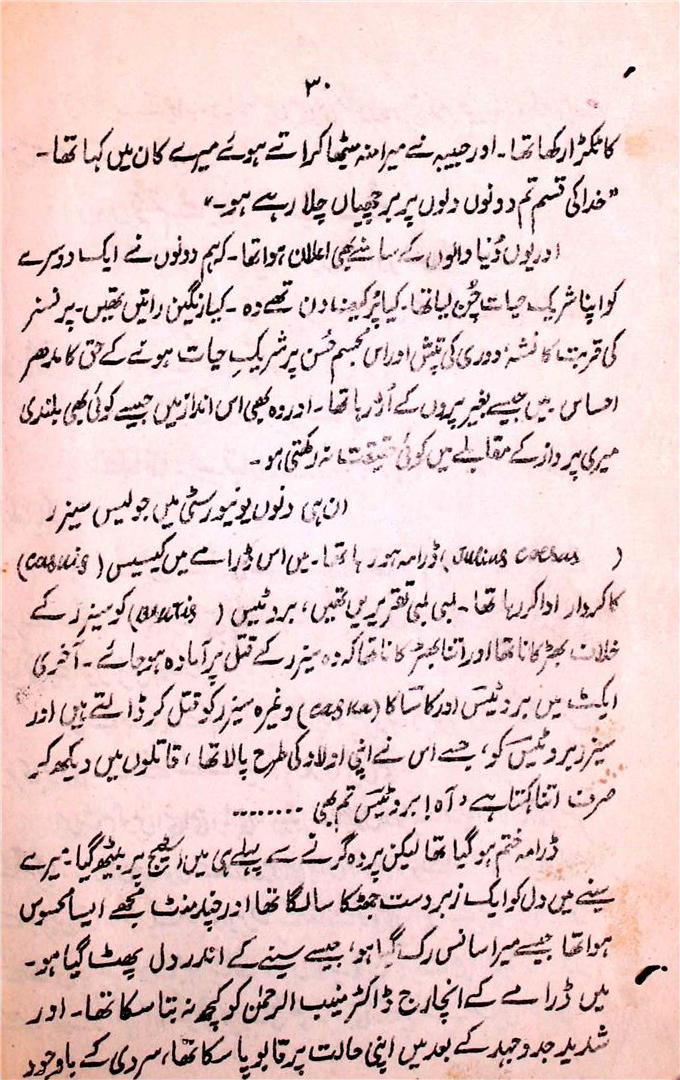 ۳۰
کا ٹکڑا رکھا تھا۔ اور حبیبہ نے میرا منہ میٹھا کراتے ہوئے میرے کان میں کہا تھا۔
”خدا کی قسم تم دونوں دلوں پر برچھیاں چلا رہے ہو۔“
اور یوں دُنیا والوں کے سامنے بھی اعلان ہوا تھا۔ کہ ہم دونوں نے ایک دوسرے
کو اپنا شریک حیات چُن لیا تھا۔ کیا پُر کیف دن تھے وہ۔ کیا رنگین راتیں تھیں۔
کی قربت کا نشہ دوری کی تپش اور اس مجسم حُسن پر شریکِ حیات ہونے کے حق کا مدھر
احساس میں جیسے بغیر پروں کے اُڑ رہا تھا۔ اور وہ بھی اس انداز میں جیسے کوئی بھی بلندی
میری پرواز کے مقابلے میں کوئی حقیقت نہ رکھتی ہو۔
ان ہی دنوں یونیورسٹی میں جولیس سیزر
(Julius Caesus) ڈرامہ ہو رہا تھا۔ میں اس ڈرامے میں کیسیس (Casuis)
کا کردار ادا کر رہا تھا۔ لمبی لمبی تقریریں تھیں، بروٹیس (Brutis) کو سیزر کے
خلاف بھڑکانا تھا اور اتنا بھڑکانا تھا کہ وہ سیزر کے قتل پر آمادہ ہو جائے۔ آخری
ایکٹ میں بروٹیس اور کاسکا (Caska) وغیرہ سیزر کو قتل کر ڈالتے ہیں اور
سیزر بروٹیس کو، جسے اس نے اپنی اولاد کی طرح پالا تھا، قاتلوں میں دیکھ کر
صرف اتنا کہتا ہے، آہ! بروٹیس تم بھی ........
ڈرامہ ختم ہو گیا تھا لیکن پردہ گرنے سے پہلے ہی میں اسٹیج پر بیٹھ گیا۔ میرے
سینے میں دل کو ایک زبردست جھٹکا سا لگا تھا اور چند منٹ مجھے ایسا محسوس
ہوا تھا جیسے میرا سانس رک گیا ہو، جیسے سینے کے اندر دل پھٹ گیا ہو۔
میں ڈرامے کے انچارج ڈاکٹر منیب الرحمٰن کو کچھ نہ بتا سکا تھا۔ اور
شدید جدوجہد کے بعد میں اپنی حالت پر قابو پا سکا تھا، سردی کے باوجود